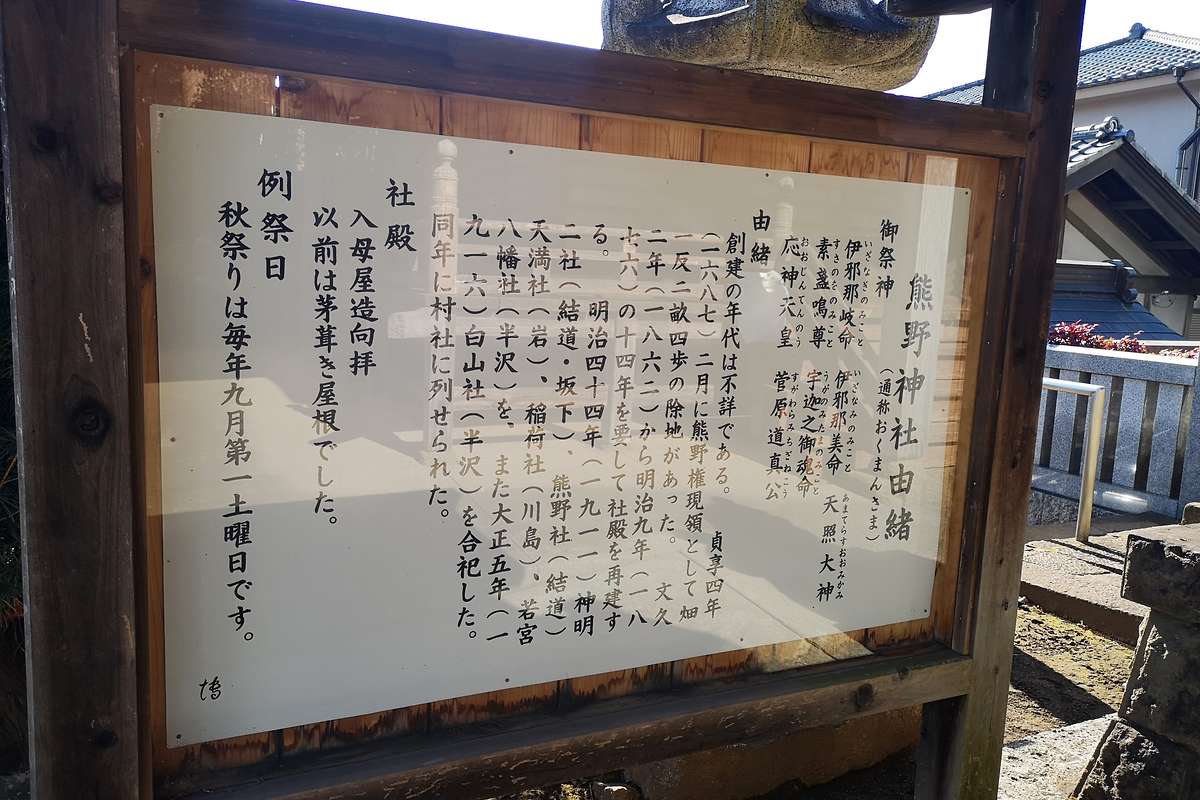 熊野神社由緒
(通称おくまんさま)
御祭神
いざなぎのみこと いざなみのみこと あまてらすおおみかみ
伊邪那岐命 伊邪那美命 天照大神
すさのをのみこと うがのみたまのみこと
素盞鳴尊 宇迦之御魂命
おおじんてんのう すがわらみちざねこう
応神天皇 菅原道真公
由緒
創建の年代は不詳である。 貞享四年
(一六八七)二月に熊野権現領として畑
一反二畝四歩の除地があった。 文久
二年(一八六二)から明治九年(一八
七六)の十四年を要して社殿を再建す
る。 明治四十四年(一九一一)神明
二社(結道・坂下)、熊野社(結道)
天満社(岩)、稲荷社(川島)、若宮
八幡社(半沢)を、また大正五年(一
九一六)白山社(半沢)を合祀した。
同年に村社に列せられた。
社殿
入母屋造向拝
以前は茅葺き屋根でした。
例祭日
秋祭りは毎年九月第一土曜日です。